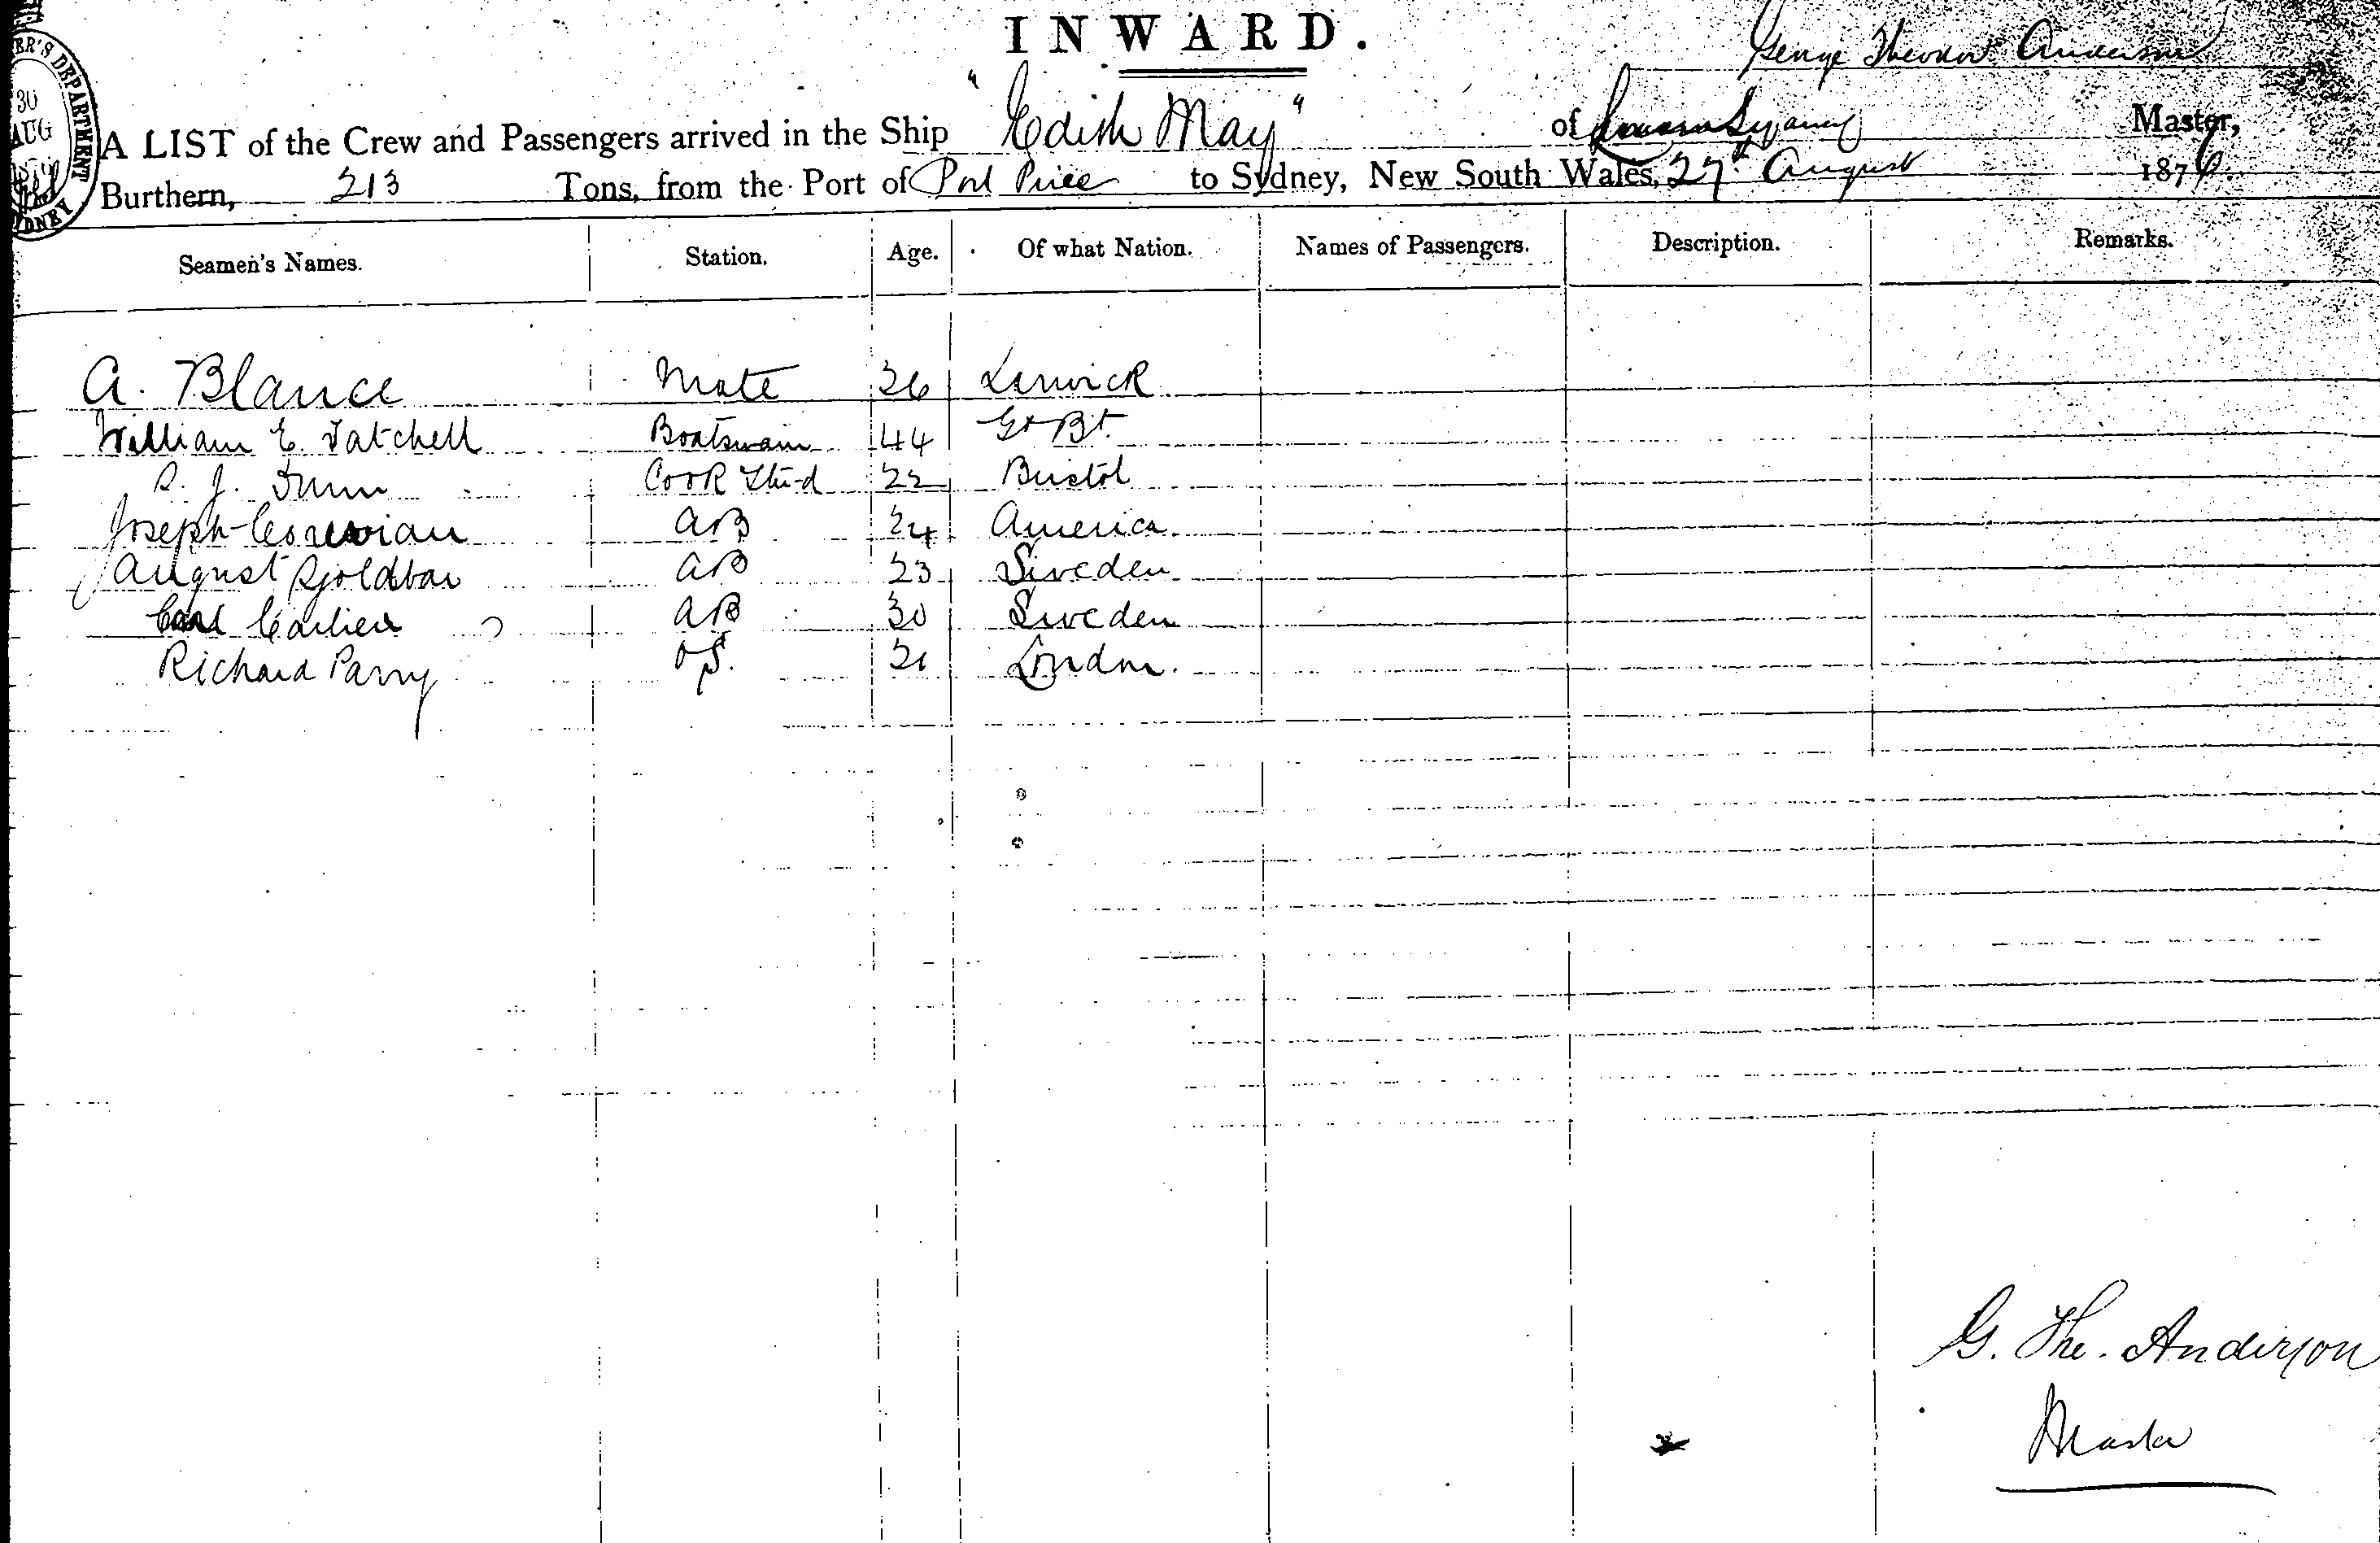 INWARD.
George Theodor Anderson
A LIST of the Crew and Passengers arrived in the Ship "Edith May" of Sydney Master,
Burthern, 213 Tons, from the Port of Port Pirie to Sydney, New South Wales, 27th August 1876.
Seamen's Names. Station. Age. Of what Nation. Names of Passengers. Description. Remarks.
A. Blance Mate 26 Lerwick
William E. Tatchell Boatswain 44 Gt Bt.
J. Dunn Cook & Stu-d 22 Bristol
Joseph AB 24 America.
August AB 23 Sweden
Carl AB 30 Sweden
Richard Parry OS. 21 London.
G. The. Anderson
Master
30
AUG
SYDNEY